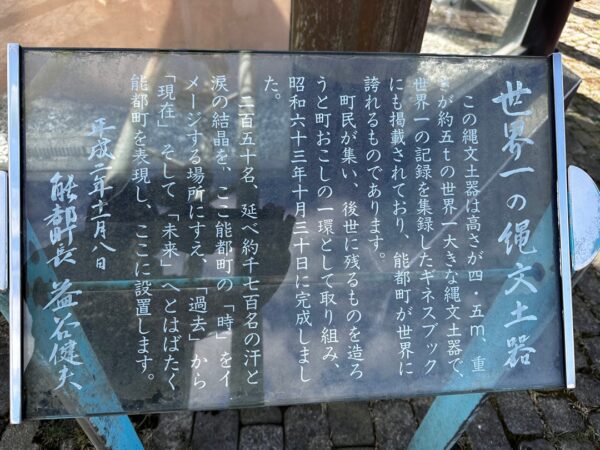 世界一の縄文土器
この縄文土器は高さが四・五m、重
さが約五tの世界一大きな縄文土器で、
世界一の記録を集録したギネスブック
にも掲載されており、能都町が世界に
誇れるものであります。
町民が集い、後世に残るものを造ろ
うと町おこしの一環として取り組み、
昭和六十三年十月三十日に完成しまし
た。
二百五十名、延べ約千七百名の汗と
涙の結晶を、ここ能都町の「時」をイ
メージする場所にすえ、「過去」から
「現在」そして「未来」へとはばたく
能都町を表現し、ここに設置します。
平成二年十一月八日
能都町長 益谷健夫